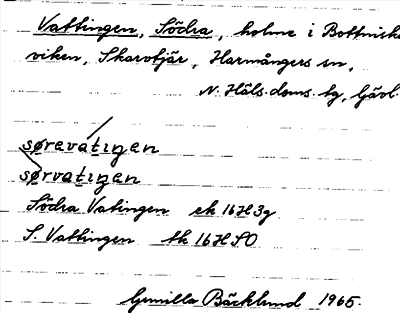 Vattingen, Södra, holme i Bottniska
viken, Skarvtjär, Harmångers sn,
N. Häls. doms. tg, Gävl.
sørevátiŋen
sørvatiŋen
Södra Vatingen ek 16H3g
S. Vattingen tk 16H SO
Gunilla Bäcklund 1965.